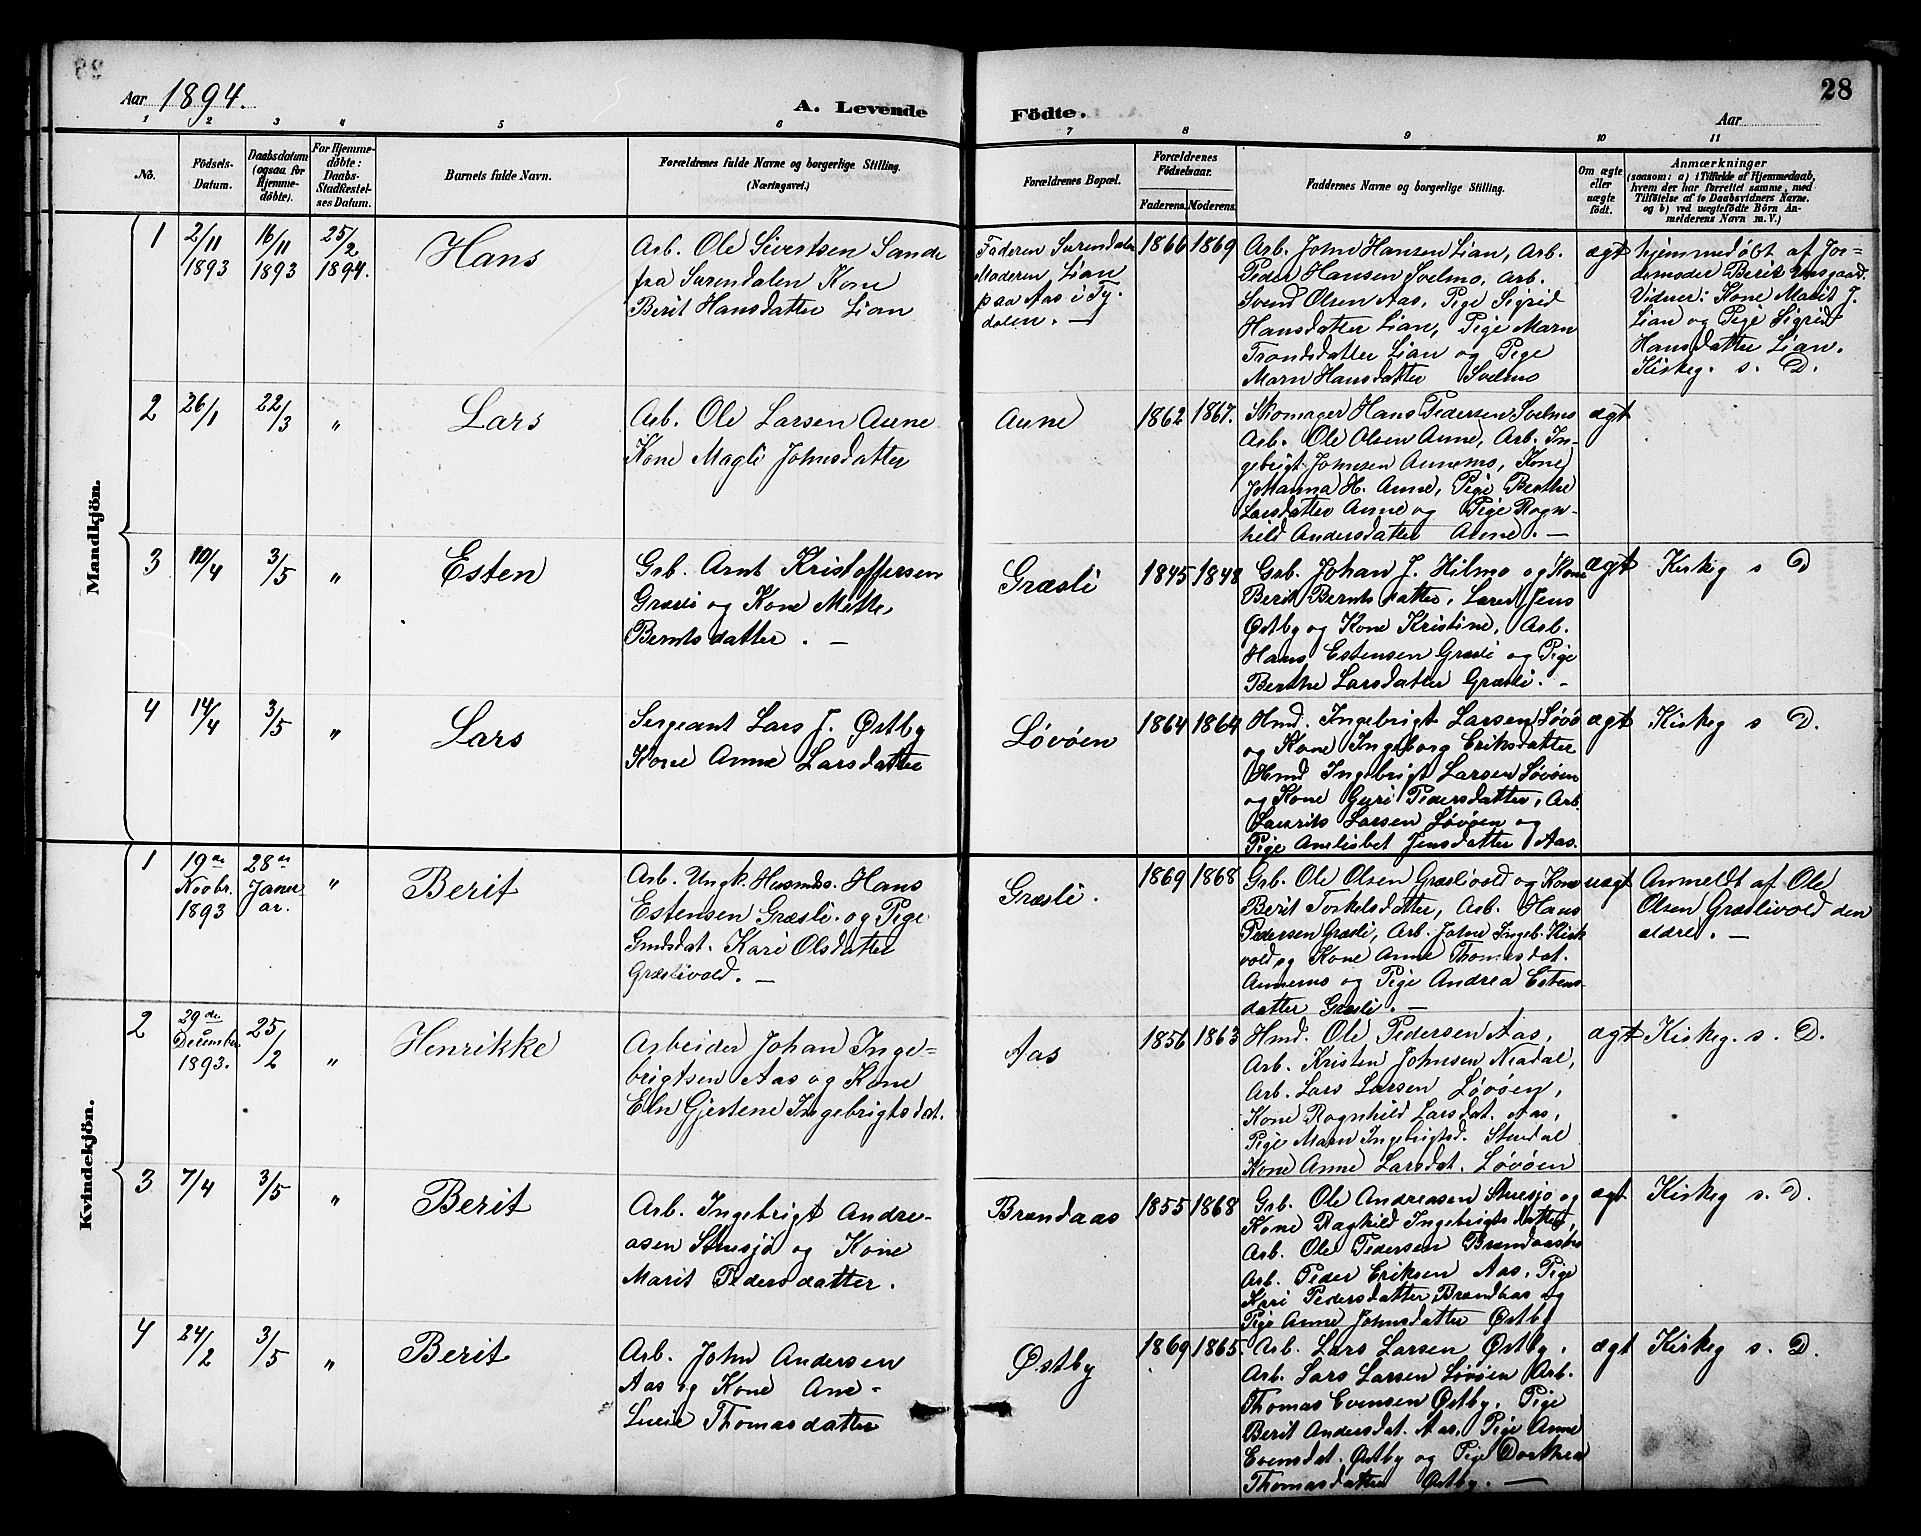 28
Aar 1894.
A. Levende
Födte.
Aar
1 2 3 4 5 6 7 8 9 10 11
No.
Födsels-
Datum.
Daabsdatum
(ogsaa for
Hjemme-
døbte).
For Hjemme-
døbte:
Daabs-
Stadfæstel-
ses Datum.
Barnets fulde Navn.
Forældrenes fulde Navne og borgerlige Stilling.
(Næringsvei.)
Forældrenes Bopæl.
Forældrenes
Födselsaar.
Faderens. Moderens.
Faddernes Navne og borgerlige Stilling.
Om ægte
eller
uægte
födt.
Anmærkninger
(saasom: a) i Tilfælde af Hjemmedaab,
hvem der har forrettet samme, med
Tilföielse af to Daabsvidners Navne.
og b) ved uægtefödte Börn An-
melderens Navn m. V.)
Mandkjön.
1
2/11
1893
16/11
1893
25/2
1894.
Hans
Arb. Ole Sivertsen Sande
fra Surendalen Kone
Berit Hansdatter Lian
Faderen Surendalen
Moderen, Lian
paa Aas i Ty-
dalen. —
1866 1869
Arb. John Hansen Lian, Arb.
Peder Hansen Svelmo, Arb.
Svend Olsen Aas, Pige Sigrid
Hansdatter Lian, Pige Marn
Trondsdatter Lian og Pige
Marn Hansdatter Svelmo
ægt
hjemmedøbt af Jor-
demoder Berit
Vidner: Kone Marit J.
Lian og Pige Sigrid
Hansdatter Lian.
Kirkeg. s. D.
2
26/1
22/3
"
Lars
Arb. Ole Larsen Aune
Kone Magli Johnsdatter
Aune
1862 1867.
Skomager Hans Pedersen Svelmo
Arb. Ole Olsen Aune, Arb. In-
gebrigt Johnsen Aunemo, Kone
Johanna H. Aune, Pige Berthe
Larsdatter Aune og Pige Rogn-
hild Andersdatter Aune. —
ægt
3
10/4
3/5
"
Esten
Grb. Arnt Kristoffersen
Græsli og Kone Mette
Berntsdatter. —
Græsli
1845 1848
Grb. Johan J. Hilmo og Kone
Berit Berntsdatter, Lærer Jens
Østby og Kone Kristine, Arb.
Hans Estensen Græsli og Pige
Berthe Larsdatter Græsli. —
ægt
Kirkeg s D
4
14/4
3/5
"
Lars
Sergeant Lars J. Østby
Kone Anne Larsdatter
Løvøen
1864 1864
Hmd. Ingebrigt Larsen Løvö
og Kone Ingeborg Eriksdatter
Hmd Ingebrigt Larsen Løvøen
og Kone Guri Pedersdatter, Arb.
Laurits Larsen Løvøen og
Pige Anelisbet Jensdatter Aas.
ægt
Kirkeg s D.
Kvindekjön.
1
19de
Novbr.
1893
28de
Janu-
ar.
"
Berit
Arb. Ungk. Husmds. Hans
Estensen Græsli og Pige
Gmdsdat. Kari Olsdatter
Græslivold. —
Græsli.
1869 1868
Grb. Ole Olsen Græslivold og Kone
Berit Torkelsdatter, Arb. Hans
Pedersen Græsli, Arb. John Ingeb. Kirk
vold og Kone Anne Thomasdat.
Aunemo og Pige Andrea Estens-
datter Græsli. —
uægt
Anmeldt af Ole
Olsen Græslivold den
ældre. —
2
29de
December
1893.
25/2
"
Henrikke
Arbeider Johan Inge-
brigtsen Aas og Kone
Eln Gjertene Ingebrigtsdat.
Aas
1856 1863
Hmd. Ole Pedersen Aas,
Arb. Kristen Johnsen Neadal,
Arb. Lars Larsen Løvøen,
Kone Rognhild Larsdat. Aas,
Pige Marn Ingebrigtsd. Stuedal
Kone Anne Larsdat. Løvøen
ægt
Kirkeg. s. D.
3
7/4
3/5
"
Berit
Arb. Ingebrigt Andre-
asen Stuesjø og Kone
Marit Pedersdatter.
Brændaas
1855 1868
Grb. Ole Andreasen Stuesjø og
Kone Ragnhild Ingebrigtsdatter,
Arb. Ole Pedersen
Arb. Peder Eriksen Aas, Pige
Kari Pedersdatter Brændaas og
Pige Anne Johnsdatter Østby
ægt
Kirkeg s. D.
4
24/2
3/5
"
Berit
Arb. John Andersen
Aas og Kone Ane-
Lucie Thomasdatter
Østby
1869 1865.
Arb. Lars Larsen Østby,
Arb. Lars Larsen Løvøen Arb.
Thomas Evensen Østby, Pige
Berit Andersdat. Aas, Pige Anne
Evensdat. Østby og Pige Dorthea
Thomasdatter Østby. —
ægt
Kirkeg s. D.